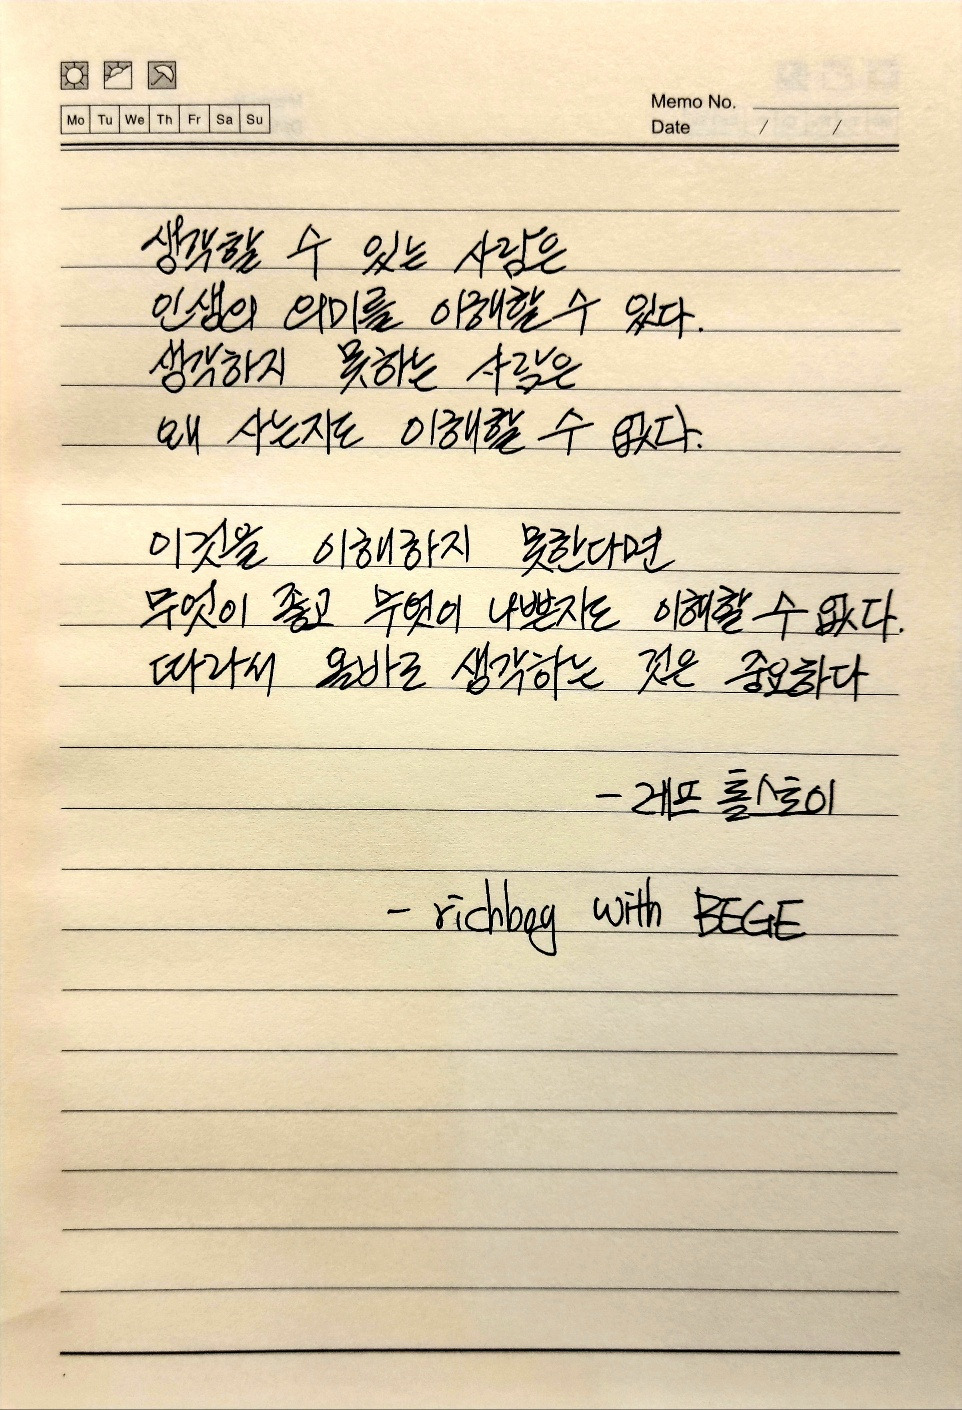 Mo Tu We Th Fr Sa Su
Memo No.
Date / /
생각할 수 있는 사람은
인생의 의미를 이해할 수 있다.
생각하지 못하는 사람은
왜 사는지도 이해할 수 없다.
이것을 이해하지 못한다면
무엇이 좋고 무엇이 나쁜지도 이해할 수 없다.
따라서 올바로 생각하는 것은 중요하다
- 레프 톨스토이
- richbag with BEGE